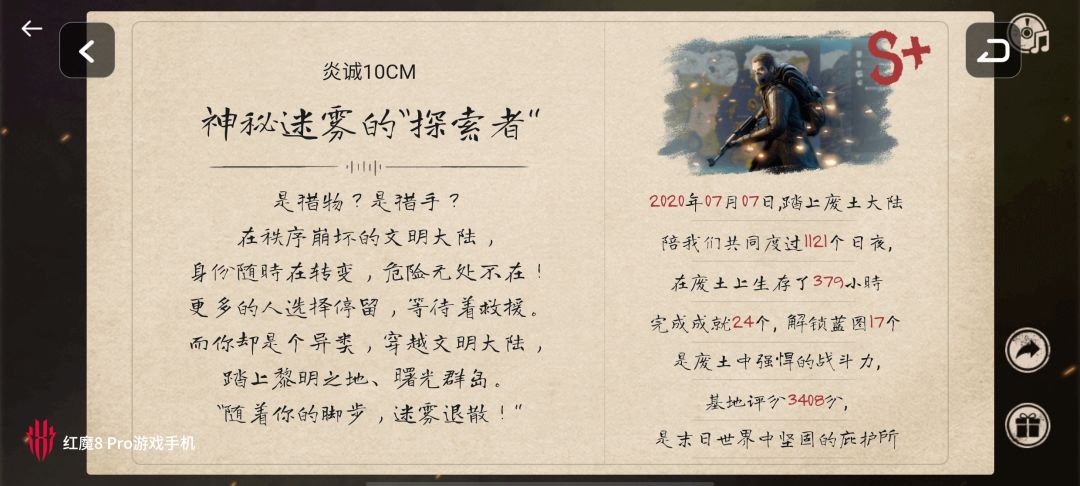 炎诚10CM
神秘迷雾的"探索者"
是猎物？是猎手？
在秩序崩坏的文明大陆，
身份随時在转变，危险无处不在！
更多的人选择停留，等待着救援。
而你却是个异类，穿越文明大陆，
踏上黎明之地、曙光群岛。
"随着你的脚步，迷雾退散！"
S+
2020年07月07日,踏上废土大陆
陪我们共同度过1121个日夜,
在废土上生存了379小時
完成成就24个, 解锁蓝图17个
是废土中强悍的战斗力,
基地评分3408分,
是末日世界中坚固的庇护所
红魔8 Pro游戏手机